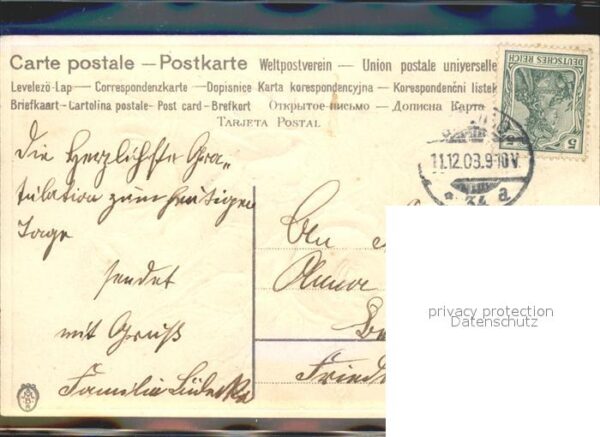 Carte postale — Postkarte Weltpostverein — Union postale universelle
Levelezö-Lap — Correspondenzkarte — Dopisnice Karta korespondencyjna — Korespondenční lístek
Briefkaart - Cartolina postale - Post card - Brefkort Открытое письмо — Дописна Карта
TARJETA POSTAL
DEUTSCHES REICH
5 5
11.12.03.9-10V.
34 a
Die Herzlichste Gra-
tulation zum heutigen
Tage
sendet
mit Gruß
Familie
privacy protection
Datenschutz